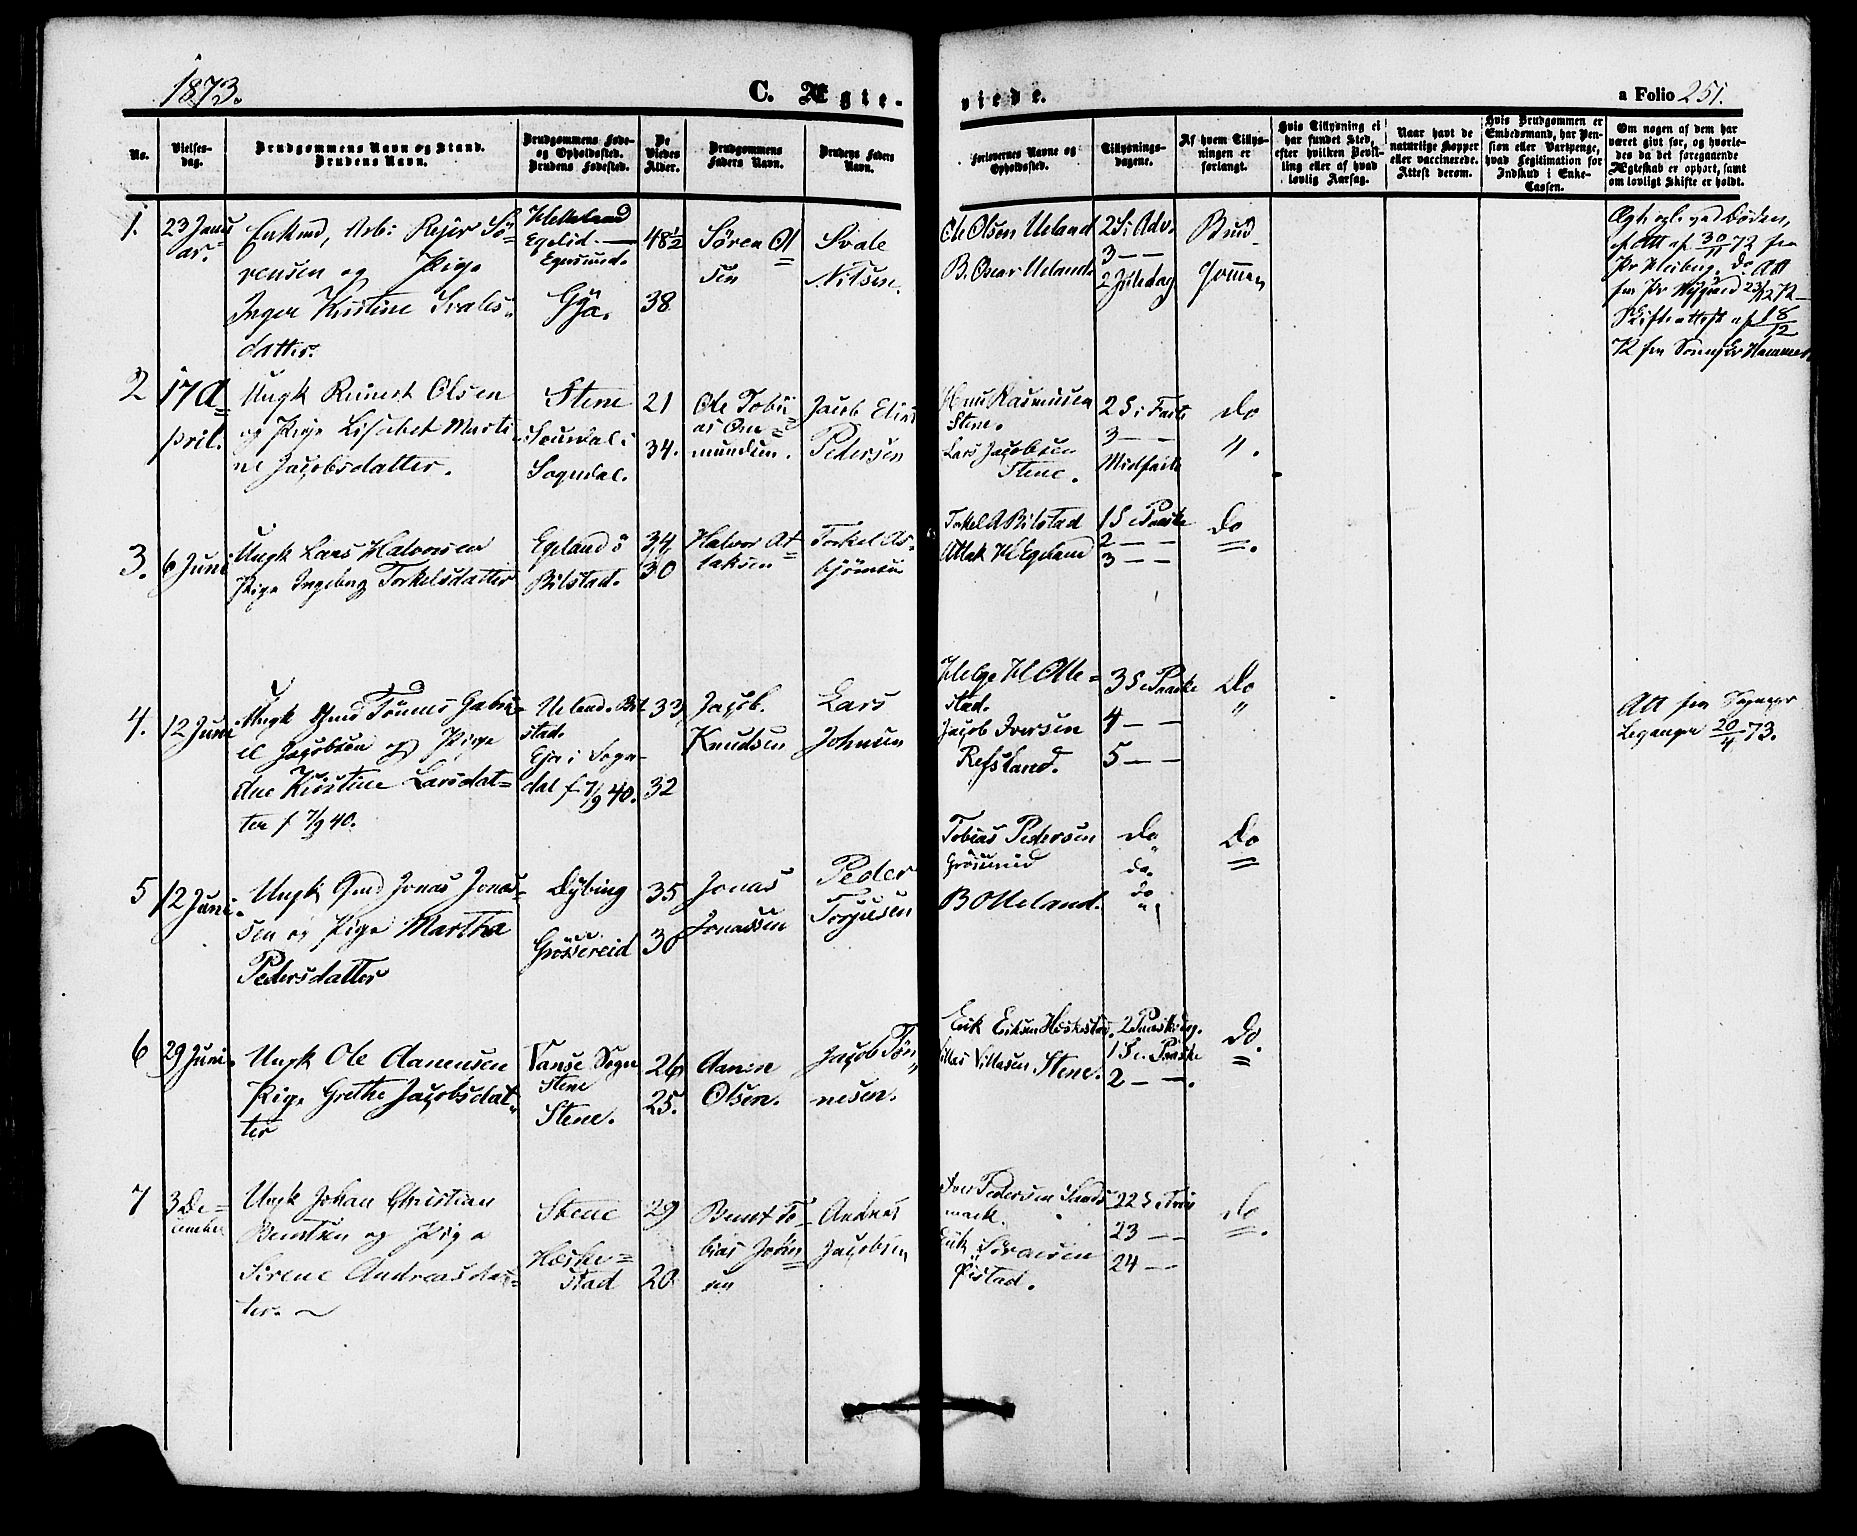 1873.
C. Ægte-
viede.
a Folio 251.
No.
Vielses-
dag.
Brudgommens Navn og Stand.
Brudens Navn.
Brudgommens Føde-
og Opholdssted.
Brudens Fødested.
De
Viedes
Alder.
Brudgommens
Faders Navn.
Brudens Faders
Navn.
Forlovernes Navne og
Opholdssted.
Tillysnings-
dagene.
Af hvem Tillys-
ningen er
forlangt.
Hvis Tillysning ei
har fundet Sted,
efter hvilken Bevil-
ling eller af hvad
lovlig Aarsag.
Naar havt de
naturlige Kopper
eller vaccinerede.
Attest derom.
Hvis Brudgommen er
Embedsmand, har Pen-
sion eller Vartpenge,
hvad Legitimation for
Indskud i Enke-
Cassen.
Om nogen af dem har
været givt før, og hvorle-
des da det foregaaende
Ægteskab er ophørt, samt
om lovligt Skifte er holdt.
1.
23 Janu
ar.
Enkmd, Arb: Rejer Sö-
rensen og Pige
Inger Kirstine Svales-
datter.
Helleland
Egelid.
Egersund.
Gya.
48½
38
Sören Ol
sen
Svale
Nilsen.
Ole Olsen Ueland
B. Oscar Ueland.
2 S i Adv.
3 — —
2 Juledag
Brud
gommen
2
17 A-
pril.
Ungk Reinert Olsen
og Pige Lisabet Marti-
ne Jacobsdatter.
Stene
Soundal i
Sogndal.
21
34.
Ole Tobi-
as Om-
mundsen.
Jacob Elias
Pedersen
Rasmusen
Stene.
Lars Jacobsen
Stene.
2 S i Faste
3 — —
Midfaste
do
"
3.
6 Juni
Ungk Lars Halvorsen
Pige Ingeborg Torkelsdatter
Egeland ö
Bilstad.
34,
30
Halvor At-
laksen
Torkel As-
björnsen
Torkel A Bilstad
Atlak H Egeland
1 S e Paaske
2 — —
3 — —
do
4.
12 Juni
Ungk Gmd Tönnes Gabri-
el Jacobsen og Pige
Ane Kirstine Larsdat-
ter f 7/9 40.
Ueland. Bil-
stad.
Eja i Sogn-
dal f 7/9 40.
33
32
Jacob
Knudsen
Lars
Johnsen
Helge H Olle-
stad.
Jacob Iversen
Refsland.
3 S e Paaske
4 — —
5 — —
Do
"
Att fra Sogneprest
20/4 73.
5
12 Juni.
Ungk Gmd Jonas Jonas-
sen og Pige Martha
Pedersdatter
Dybing
Grössereid
35
30
Jonas
Jonassen
Peder
Torjusen
Tobias Pedersen
B O Ueland.
do
do
do
Do
6
29 Juni.
Ungk Ole Aanensen
Pige Grethe Jacobsdat-
ter
Vanse Sogn
Stene
Stene.
26
25.
Aanen
Olsen.
Jacob Tön-
nesen.
Erik Eriksen Heskestad.
Villas Villasen Stene.
2 Paaskdag.
1 S e. Paaske
2 — —.
Do.
7
3 De-
cember
Ungk Johan Christian
Berntsen og Pige
Sirene Andreasdat-
ter.
Stene
Heske-
stad
29
20
Bernt To-
bias Jörgen-
sen
Andreas
Jacobsen
Iver Pedersen Sands-
mark.
Erik Sörensen
22 S e Trin
23 — —
24 — —
do